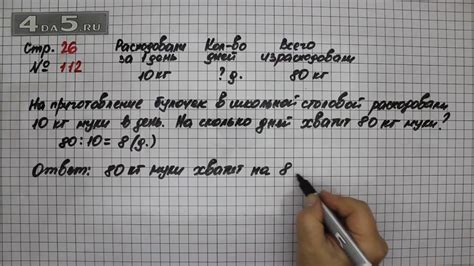 4DA5.RU
Стр. 26
№ 112
Расходовали за 1 день
10 кг
Кол-во дней
? д.
Всего израсходовали
80 кг
На приготовление булочек в школьной столовой расходовали
10 кг муки в день. На сколько дней хватит 80 кг муки?
80 : 10 = 8 (д.)
Ответ: 80 кг муки хватит на 8